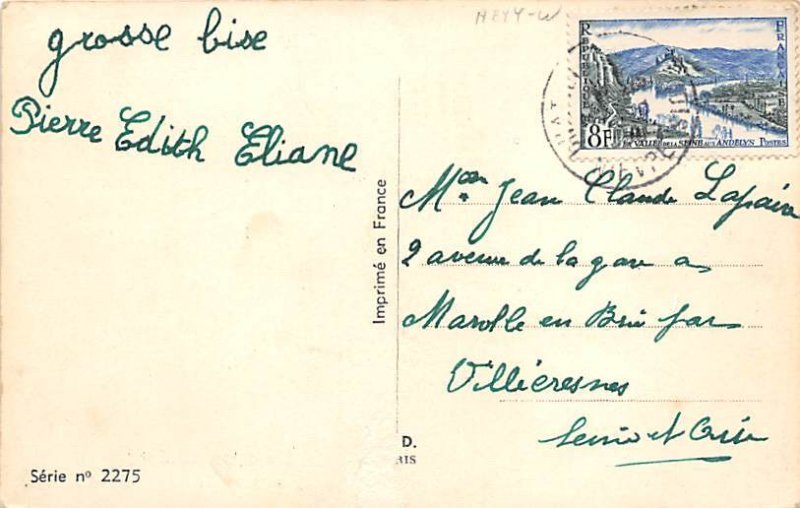 grosse bise
Pierre Edith Eliane
Série nº 2275
Imprimé en France
D.
RIS
HEYY-W
REPUBLIQUE FRANÇAISE
8F
LA VALLÉE DE LA SEINE AUX ANDELYS POSTES
Mon Jean Claude Lapaire
2 avenue de la gare a
Marolle en Brie par
Villiecresnes
Seine et Oise